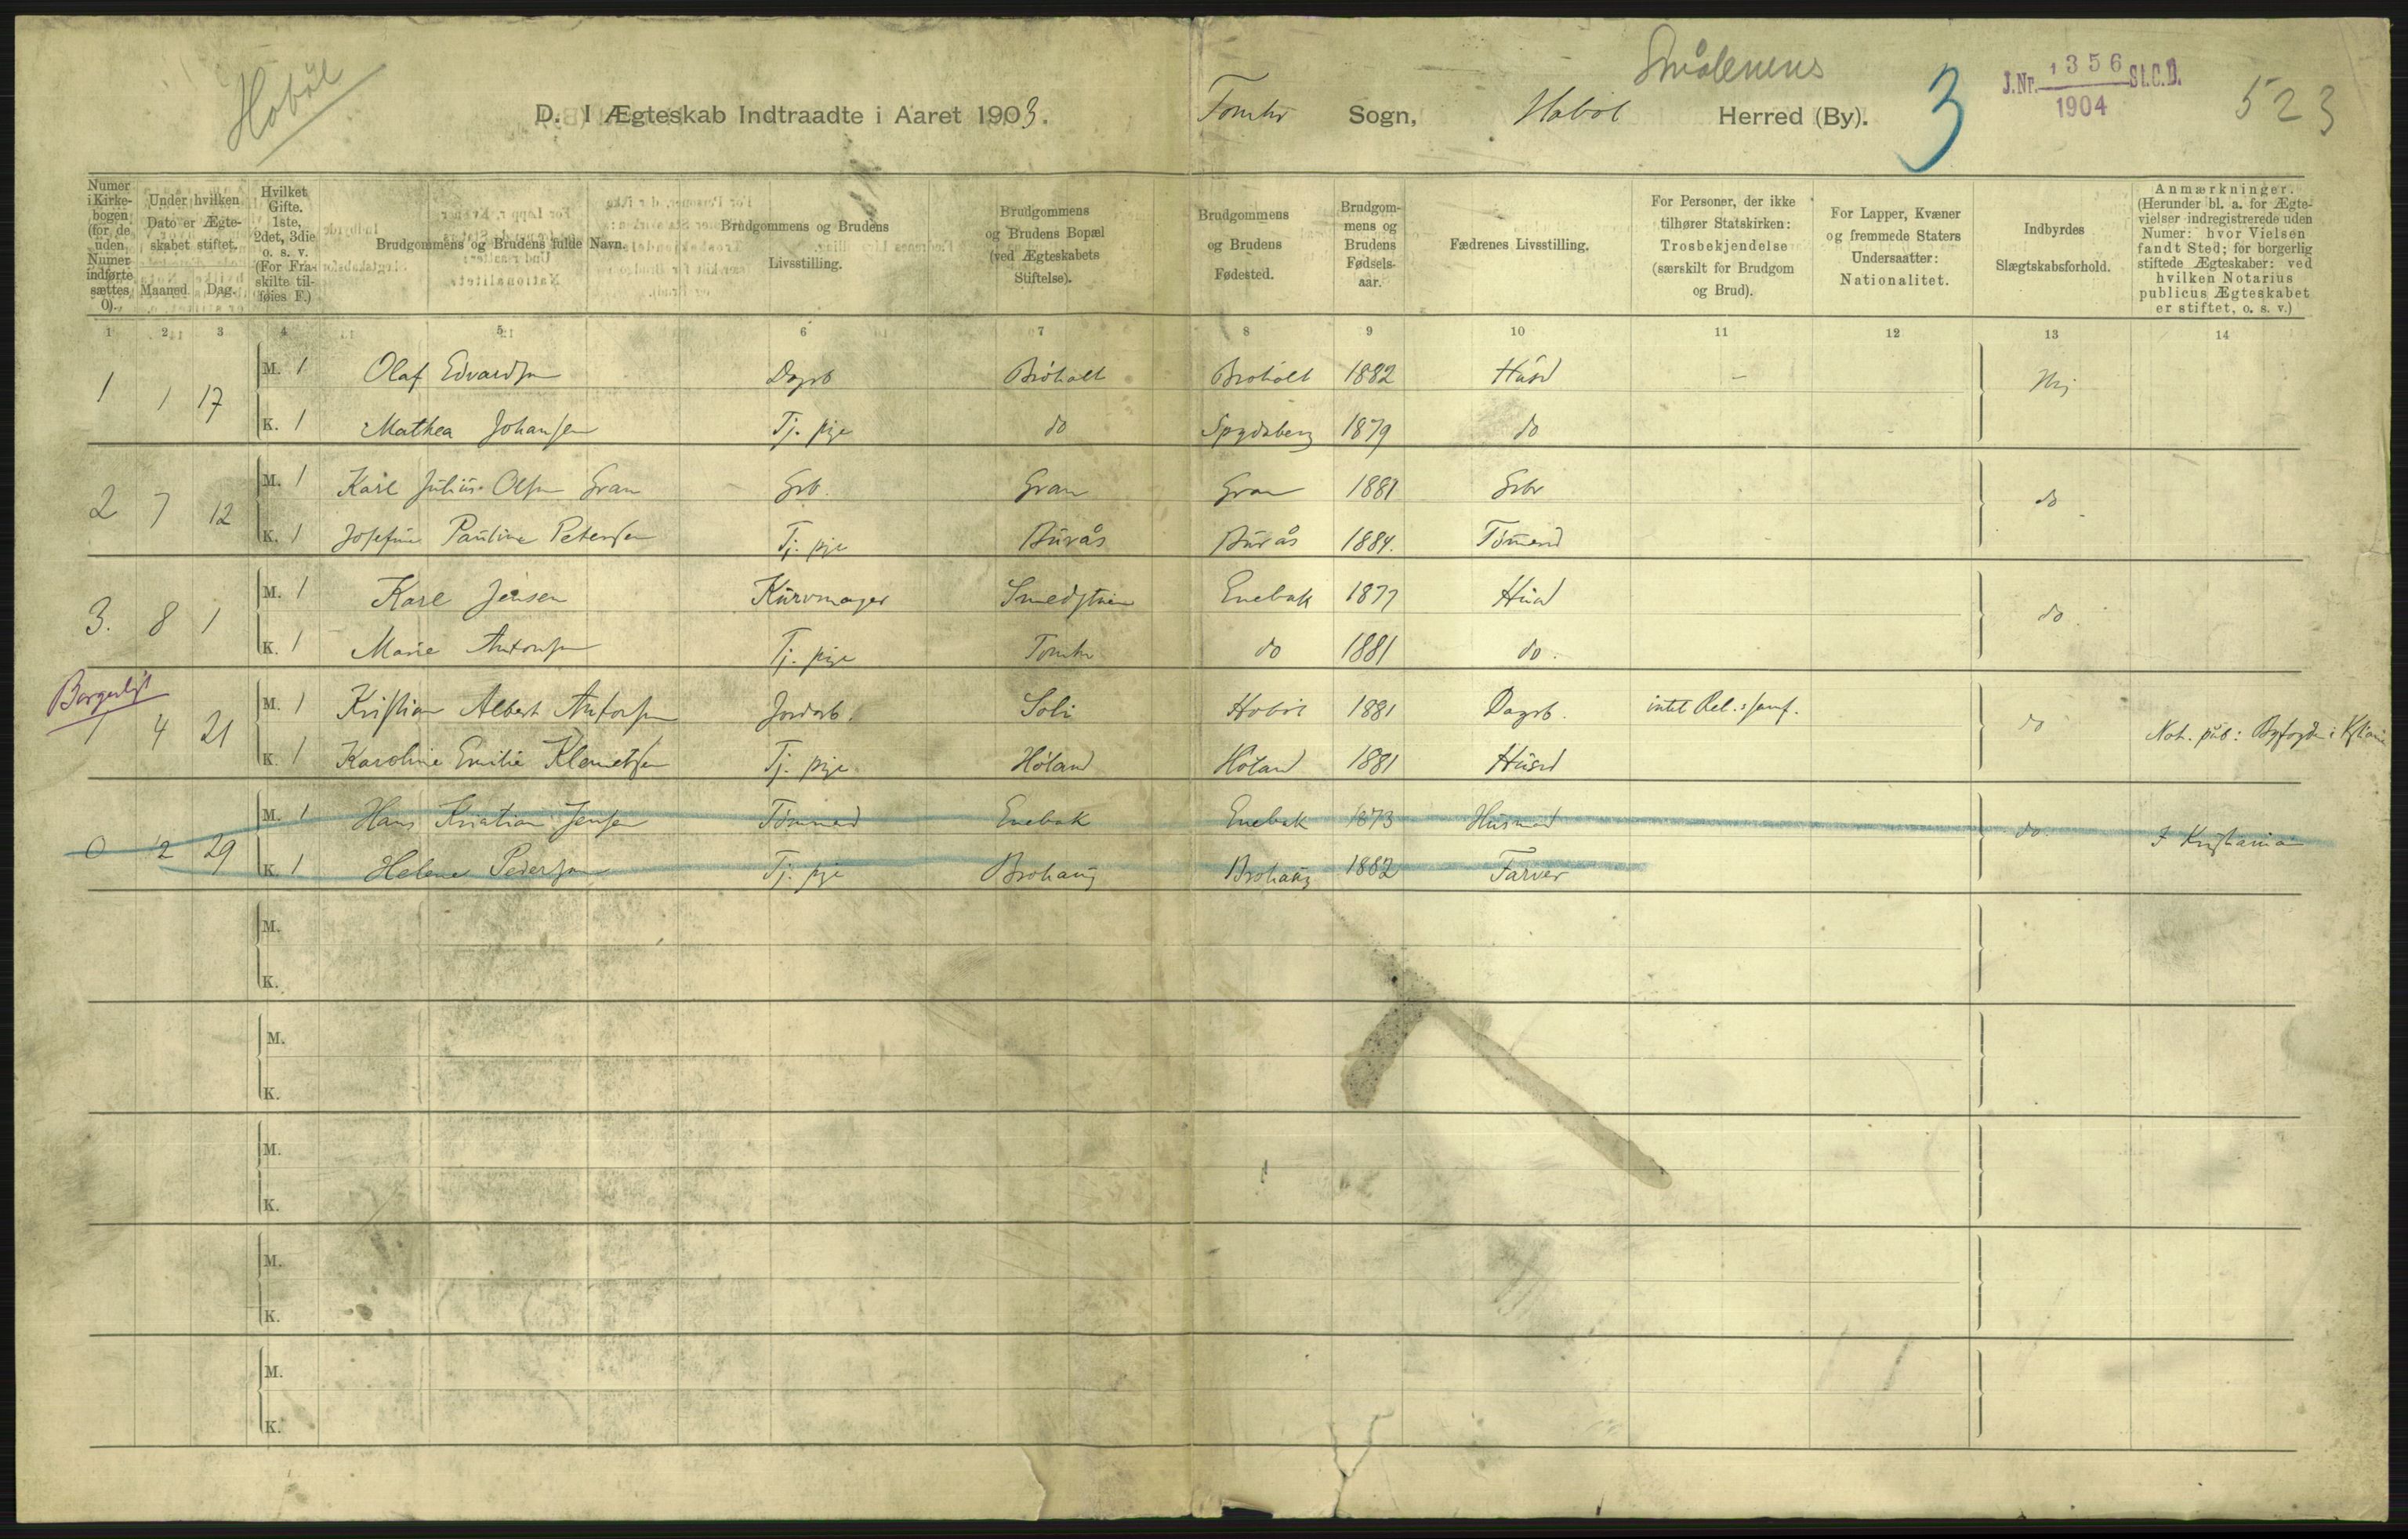 Hobøl
Smålenens
D. I Ægteskab Indtraadte i Aaret 1903. Tomter Sogn, Hobøl Herred (By).
3
J.Nr. 1356 St.C.B.
1904
523
Numer i Kirkebogen (for de uden Numer indførte sættes 0).
Under hvilken Dato er Ægteskabet stiftet.
Maaned
Dag.
Hvilket Gifte. 1ste, 2det, 3die o. s. v. (For Fraskilte tilføies F.)
Brudgommens og Brudens fulde Navn.
Brudgommens og Brudens Livsstilling.
Brudgommens og Brudens Bopæl (ved Ægteskabets Stiftelse).
Brudgommens og Brudens Fødested.
Brudgommens og Brudens Fødselsaar.
Fædrenes Livsstilling.
For Personer, der ikke tilhører Statskirken: Trosbekjendelse (særskilt for Brudgom og Brud).
For Lapper, Kvæner og fremmede Staters Undersaatter: Nationalitet.
Indbyrdes Slægtskabsforhold.
Anmærkninger. (Herunder bl. a. for Ægtevielser indregistrerede uden Numer: hvor Vielsen fandt Sted; for borgerlig stiftede Ægteskaber: ved hvilken Notarius publicus Ægteskabet er stiftet, o. s. v.)
1 2 3 4 5 6 7 8 9 10 11 12 13 14
1 1 17 M. 1 Olaf Edvardsen Dagb Broholt Broholt 1882 Husd - Nei
K. 1 Mathea Johansen Tj. pige do Spydeberg 1879 do
2 7 12 M. 1 Karl Julius Olsen Gran Grb. Gran Gran 1881 Grbr do
K. 1 Josefine Pauline Petersen Tj. pige Burås Burås 1884. Tømmd
3. 8 1 M. 1 Karl Jensen Kurvmager Smedstuen Enebak 1877 Husd do.
K. 1 Marie Antonsen Tj. pige Tomter do 1881 do.
Borgerligt
1 4 21 M. 1 Kristian Albert Antonsen Jordarb. Soli Hobøl 1881 Dagb. intet Rel.: samf. do Not. pub: Byfogden i Kristiania
K. 1 Karoline Emilie Klemetsen Tj. pige Høland Høland 1881 Husd
0 12 29 M. 1 Hans Kristian Jensen Tømmmd Enebak Enebak 1873 Husmd do. I Kristiania
K. 1 Helene Pedersen Tj. pige Brohaug Brohaug 1882 Farver
M.
K.
M.
K.
M.
K.
M.
K.
M.
K.